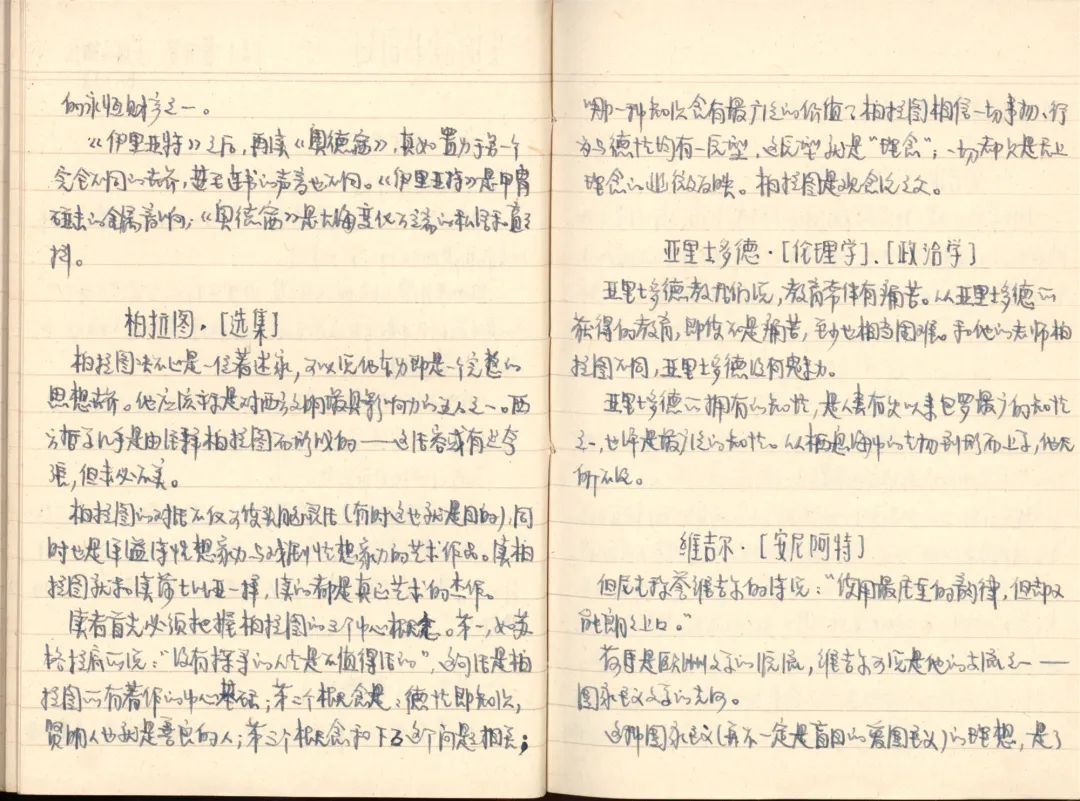 的永恒财产之一。
《伊里亚特》之后，再读《奥德赛》，真如置身于另一个
完全不同的世界，甚至连书的声音也不同。《伊里亚特》是甲胄
的金属音响；《奥德赛》是大海变化万端的私语和直
抖。
柏拉图·[选集]
柏拉图决不止是一位著述家，可以说他本身即是一个完整的
思想世界。他应该算是对西方文明最具影响力的主人之一。西
方哲学几乎是由注释柏拉图而形成的——这话容或有些夸
张，但未必不真。
柏拉图的对话不仅可使头脑灵活(有时这也就是目的)，同
时也是洋溢诗性想象力与戏剧性想象力的艺术作品。读柏
拉图就和读莎士比亚一样，读的都是真正艺术的杰作。
读者首先必须把握柏拉图的三个中心概念。第一，如苏
格拉底所说："没有探寻的人生是不值得活的"，这句话是柏
拉图所有著作的中心基础；第二个概念是：德性即知识，
贤明人也就是善良的人；第三个概念和下面这个问题相关；
"哪一种知识含有最广泛的价值？柏拉图相信一切事物、行
为与德性均有一原型，这原型就是"理念"；一切都只是无上
理念的些微反映。柏拉图是观念论之父。
亚里士多德·[伦理学]、[政治学]
亚里士多德教我们说，教育常伴有痛苦。从亚里士多德所
获得的教育，即使不是痛苦，至少也相当困难。和他的老师柏
拉图不同，亚里士多德没有魅力。
亚里士多德所拥有的知性，是人类有史以来包罗最广的知性
之一，也许是最广泛的知性。从栖息海中的生物到形而上学，他无
所不论。
维吉尔·[安尼阿特]
但尼生称誉维吉尔的诗说："使用最庄重的韵律，但却又
能朗朗上口。"
荷马是欧洲文学的源流，维吉尔可说是他的支流之一——
国家主义文学的先河。
这种国家主义(并不一定是盲目的爱国主义)的理想，是了